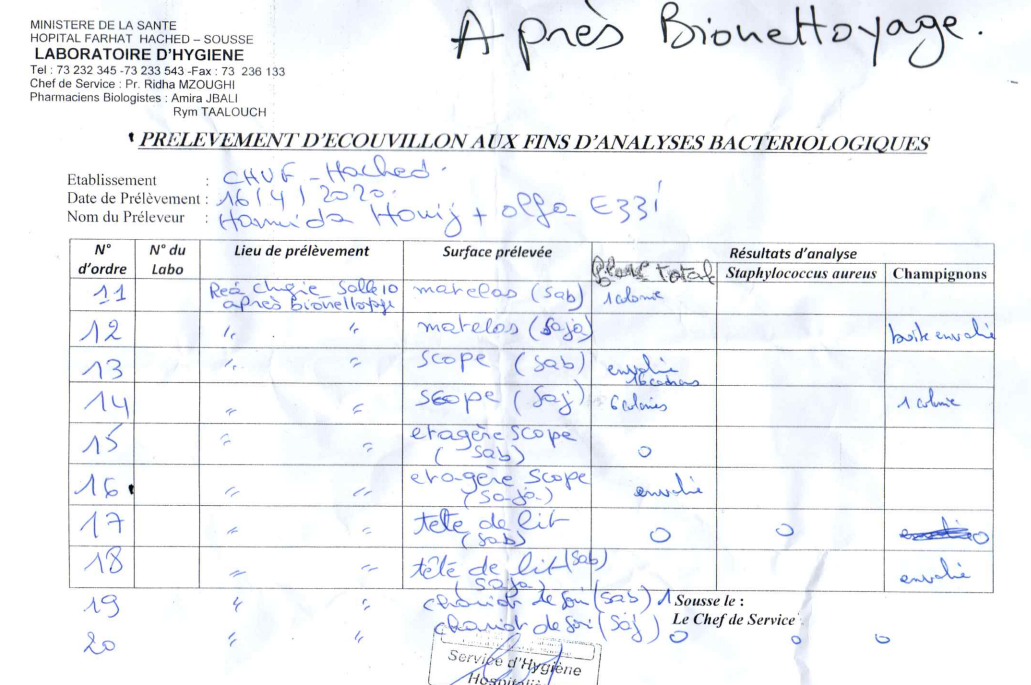 MINISTERE DE LA SANTE
HOPITAL FARHAT HACHED – SOUSSE
LABORATOIRE D'HYGIENE
Tel : 73 232 345 -73 233 543 -Fax : 73 236 133
Chef de Service : Pr. Ridha MZOUGHI
Pharmaciens Biologistes : Amira JBALI
Rym TAALOUCH
Après Bionettoyage.
PRELEVEMENT D'ECOUVILLON AUX FINS D'ANALYSES BACTERIOLOGIQUES
Etablissement : CHUF-Hached.
Date de Prélèvement : 16/4/2020.
Nom du Préleveur : Hamida Houij + olfa Ezzi
N° d'ordre N° du Labo Lieu de prélèvement Surface prélevée Résultats d'analyse
total Staphylococcus aureus Champignons
11 Salle 10 après Bionettoyage matelas (Sab) 1 colonie
12 " " matelas (Saja) boite envahie
13 " " scope (sab) envahie
14 " " scope (Saj) 6 colonies 1 colonie
15 " " etagère scope (sab) 0
16 " " etagère scope (saja) envahie
17 " " tete de lit (sab) 0 0 0
18 " " tête de lit (sab) (saja) envahie
19 " " chariot de soi (sab) 1 Sousse le :
Le Chef de Service
20 " " chariot de soi (saj) 0 0 0
Service d'Hygiène